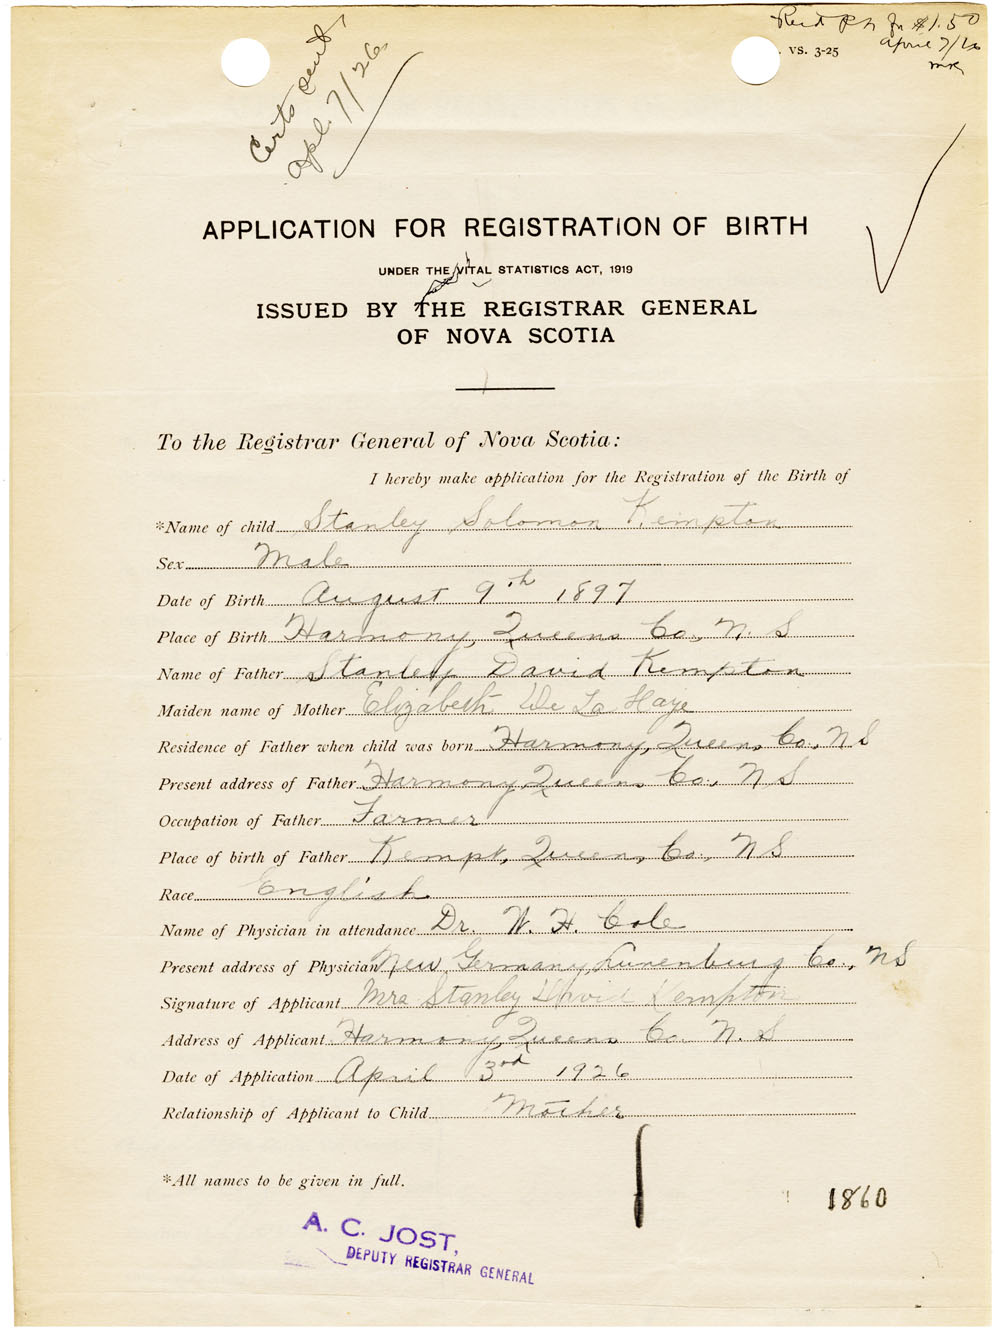 Certs sent
Apl. 7/26
Recd P.N. for $1.50
April 7/26
VS. 3-25
APPLICATION FOR REGISTRATION OF BIRTH
UNDER THE VITAL STATISTICS ACT, 1919
ISSUED BY THE REGISTRAR GENERAL
OF NOVA SCOTIA
To the Registrar General of Nova Scotia:
I hereby make application for the Registration of the Birth of
*Name of child Stanley Solomon Kempton
Sex Male
Date of Birth August 9th 1897
Place of Birth Harmony, Queens Co., N. S
Name of Father Stanley David Kempton
Maiden name of Mother Elizabeth De La Haye
Residence of Father when child was born Harmony, Queens Co., N S
Present address of Father Harmony, Queens Co., N S
Occupation of Father Farmer
Place of birth of Father Kempt, Queens Co., N S
Race English
Name of Physician in attendance Dr. W. H. Cole
Present address of Physician New Germany, Lunenburg Co., N S
Signature of Applicant Mrs Stanley David Kempton
Address of Applicant Harmony, Queens Co. N. S
Date of Application April 3rd 1926
Relationship of Applicant to Child Mother
*All names to be given in full.
1860
A. C. JOST,
DEPUTY REGISTRAR GENERAL